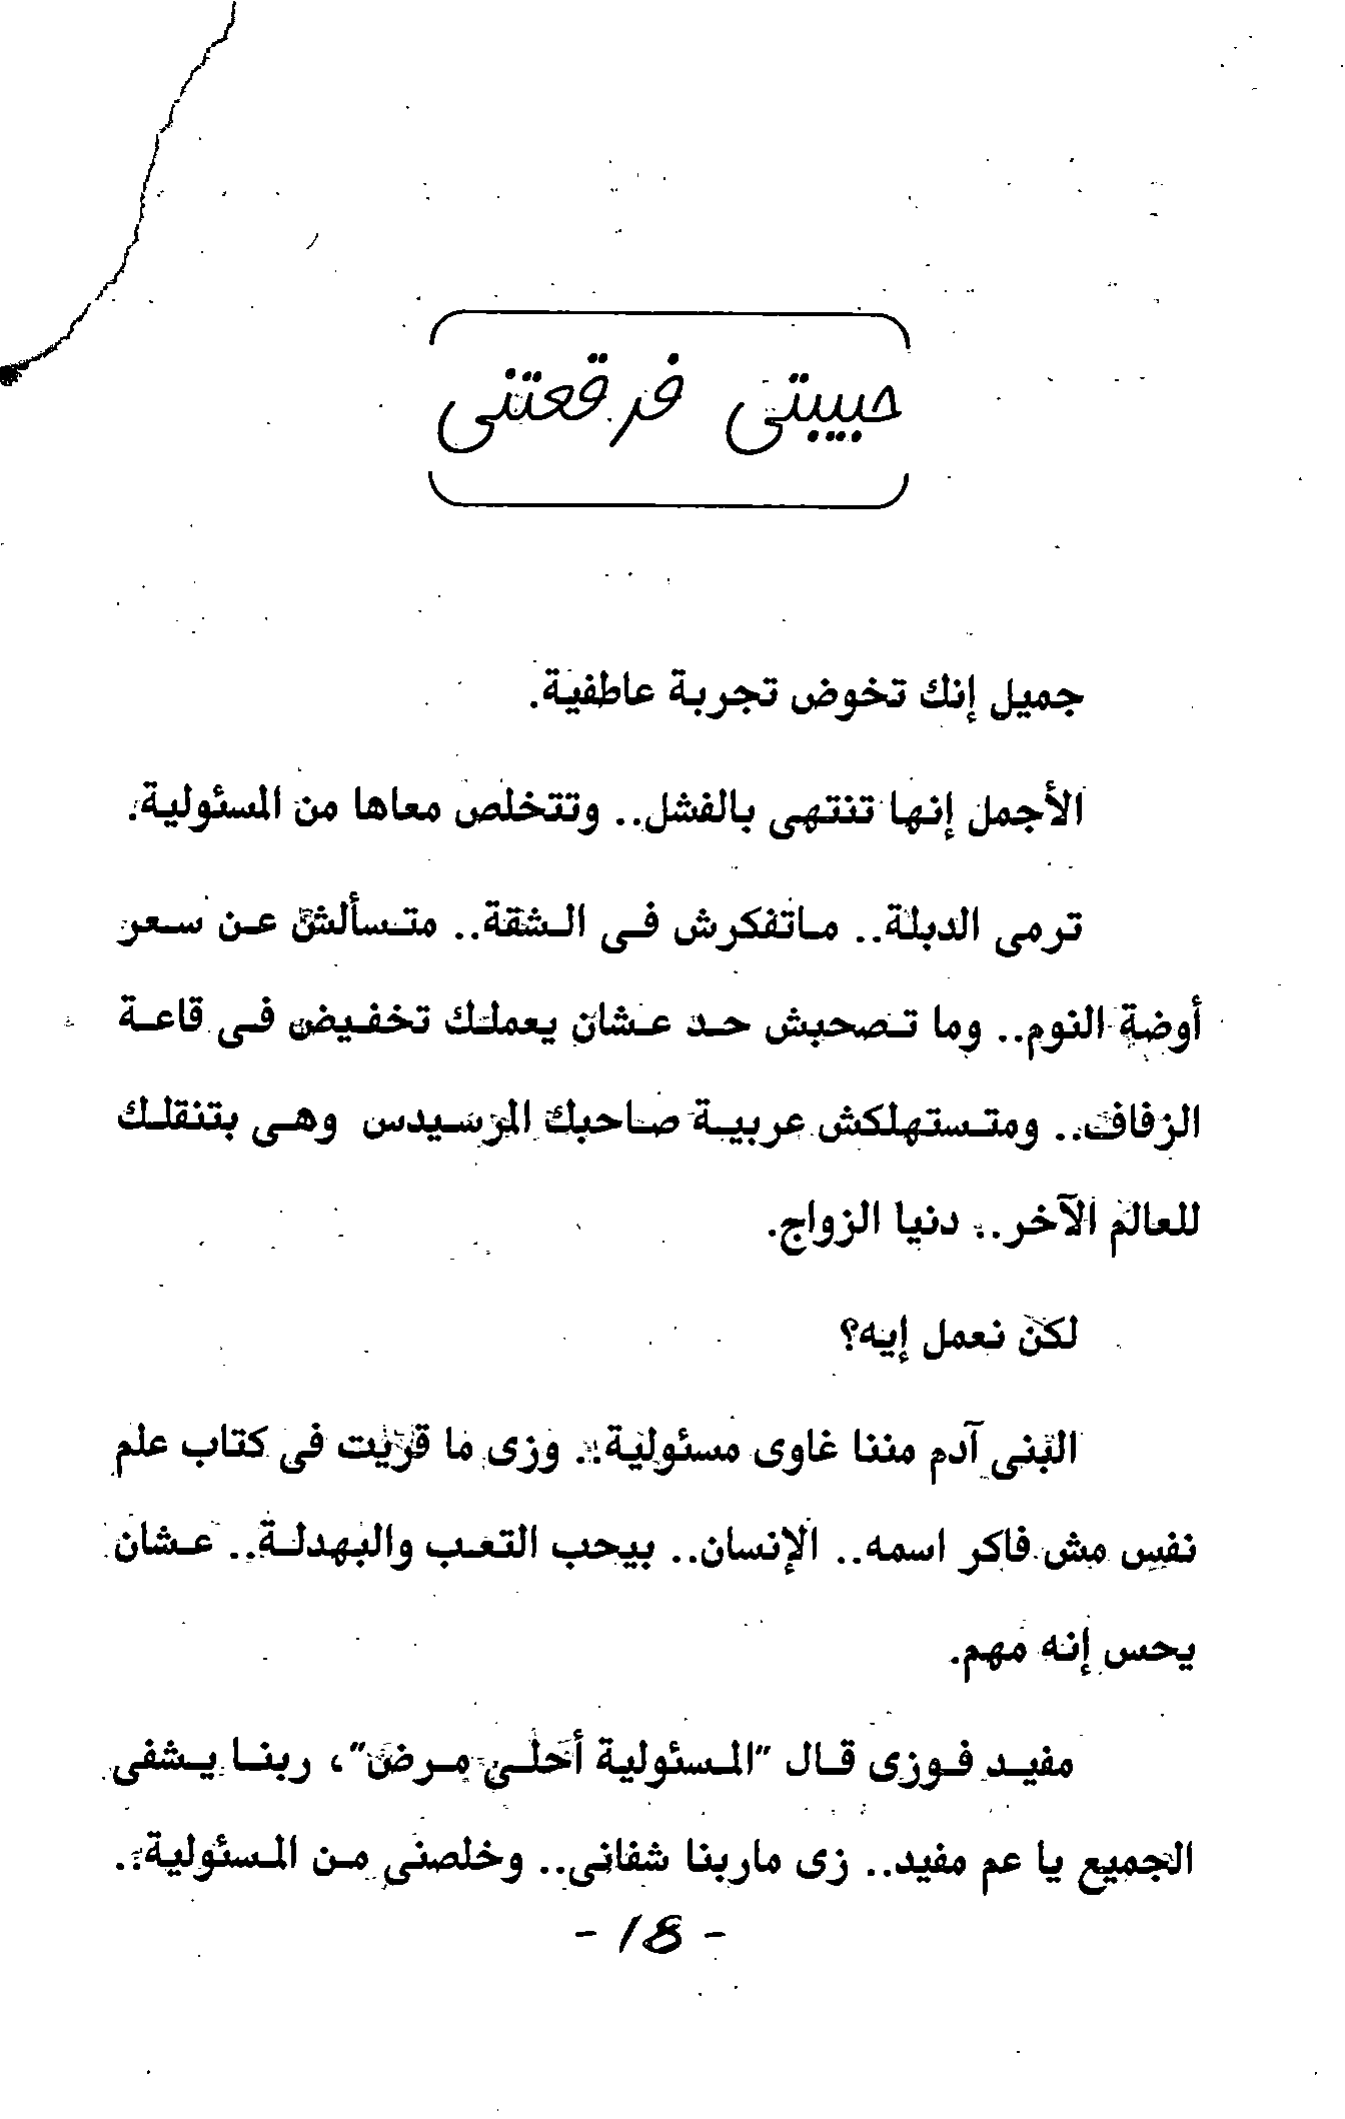 حبيبتى فرقعتنى
جميل إنك تخوض تجربة عاطفية.
الأجمل إنها تنتهى بالفشل.. وتتخلص معاها من المسئولية.
ترمى الدبلة.. ماتفكرش فى الشقة.. متسألش عن سعر
أوضة النوم.. وما تصحبش حد عشان يعملك تخفيض فى قاعة
الزفاف.. ومتستهلكش عربية صاحبك المرسيدس وهى بتنقلك
للعالم الآخر.. دنيا الزواج.
لكن نعمل إيه؟
البنى آدم مننا غاوى مسئولية.. وزى ما قريت فى كتاب علم
نفس مش فاكر اسمه.. الإنسان.. بيحب التعب والبهدلة.. عشان
يحس إنه مهم.
مفيد فوزى قال "المسئولية أحلى مرض"، ربنا يشفى
الجميع يا عم مفيد.. زى ماربنا شفانى.. وخلصنى من المسئولية..
- 18 -